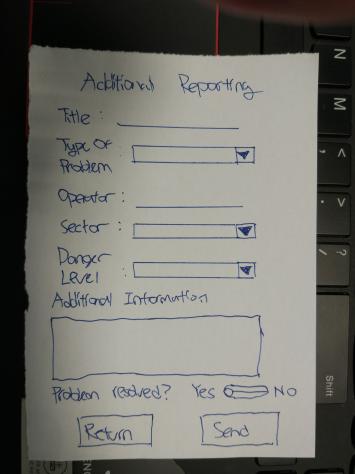 Additional Reporting
Title :
Type Of Problem :
Operator :
Sector :
Danger Level :
Additional Information
Problem resolved? Yes NO
Return Send
N
M
< ,
> .
? /
Shift